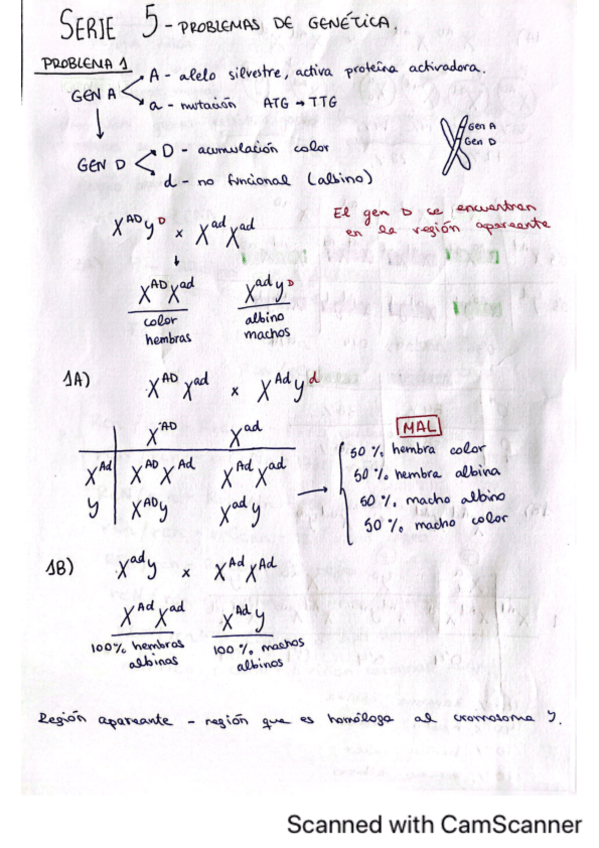 SERIE 5 - PROBLEMAS DE GENÉTICA.
PROBLEMA 1
GEN A
A - alelo silvestre, activa proteína activadora.
a - mutación ATG → TTG
GEN D
D - acumulación color
d - no funcional (albino)
Gen A
Gen D
El gen D se encuentran
en la región apareante
X^AD y^D x X^ad X^ad
X^AD X^ad X^ad y^D
color hembras
albino machos
1A) X^AD X^ad x X^Ad y^d
X^AD X^ad
X^Ad X^AD X^Ad X^Ad X^ad
y X^AD y X^ad y
→
MAL
50 % hembra color
50 % hembra albina
50 % macho albino
50 % macho color
1B) X^ad y x X^Ad X^Ad
X^Ad X^ad X^Ad y
100% hembras albinas
100 % machos albinos
Región apareante - región que es homóloga al cromosoma y.
Scanned with CamScanner